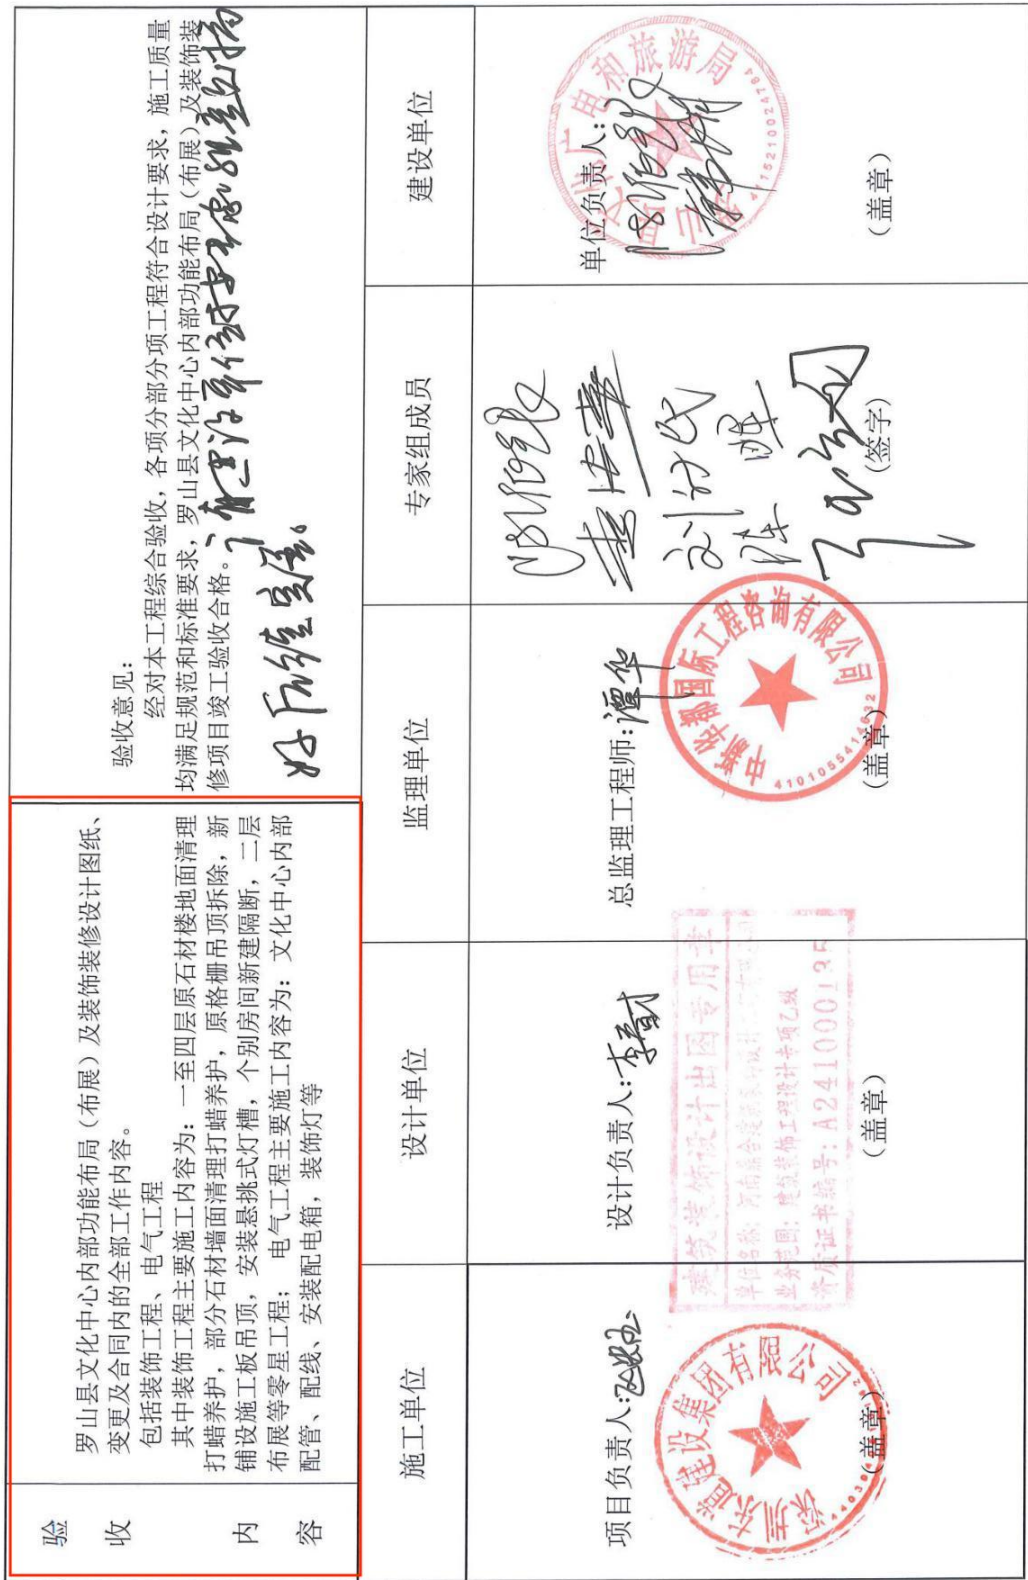 验
收
内
容
罗山县文化中心内部功能布局（布展）及装饰装修设计图纸、
变更及合同内的全部工作内容。
包括装饰工程、电气工程
其中装饰工程主要施工内容为：一至四层原石材楼地面清理
打蜡养护，部分石材墙面清理打蜡养护，原格栅吊顶拆除，新
铺设施工板吊顶，安装悬挑式灯槽，个别房间新建隔断，二层
布展等零星工程； 电气工程主要施工内容为：文化中心内部
配管、配线、安装配电箱，装饰灯等
验收意见：
经对本工程综合验收，各项分部分项工程符合设计要求，施工质量
均满足规范和标准要求，罗山县文化中心内部功能布局（布展）及装饰装
修项目竣工验收合格。
施工单位
设计单位
监理单位
专家组成员
建设单位
项目负责人：
深圳东道建设集团有限公司
（盖章）
设计负责人：
建筑装饰设计出图专用章
业务范围：建筑装饰工程设计专项乙级
资质证书编号：A241000135
（盖章）
总监理工程师：谭华
中新华都国际工程咨询有限公司
4101055414632
（盖章）
（签字）
单位负责人：
文化广电和旅游局
4115210024784
（盖章）